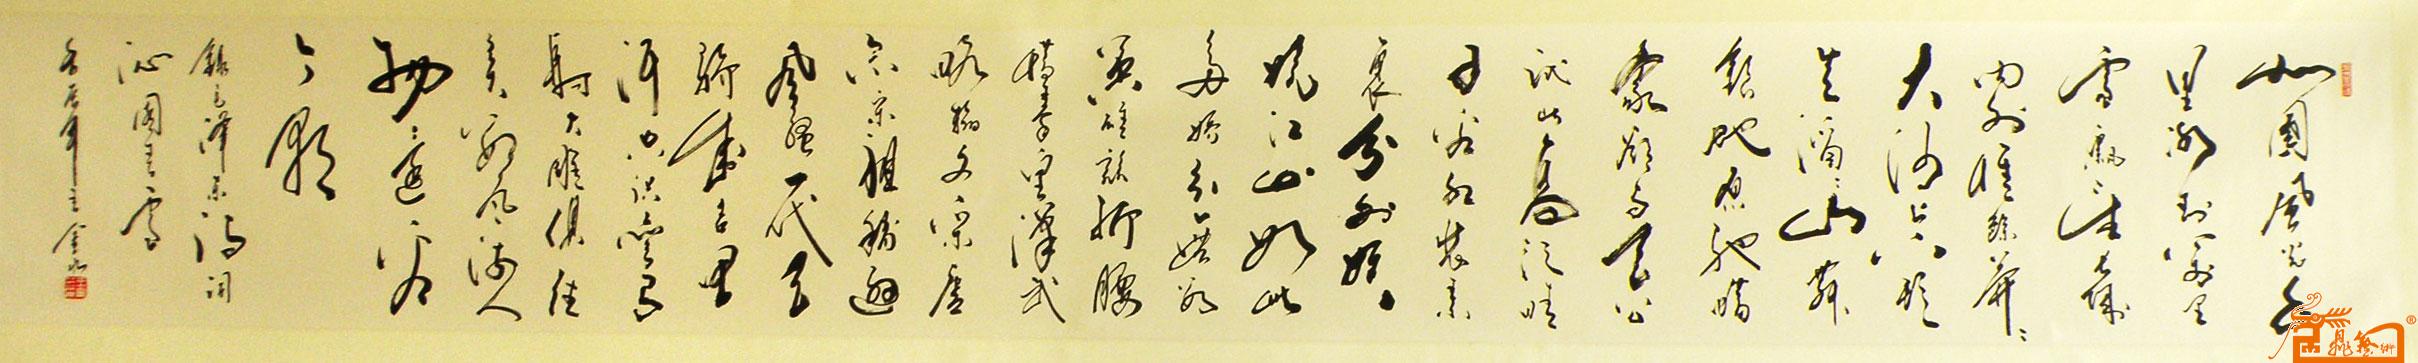 北国风光千
里冰封万里
雪飘望长城
内外惟余莽〻
大河上下顿
失滔〻山舞
银蛇原驰蜡
象欲与天公
试比高须晴
日看红装素
裹分外妖
娆江山如此
多娇引无数
英雄竞折腰
惜秦皇汉武
略输文采唐
宗宋祖稍逊
风骚一代天
骄成吉思
汗只识弯弓
射大雕俱往
矣数风流人
物还看
今朝
录毛泽东诗词
沁园春雪